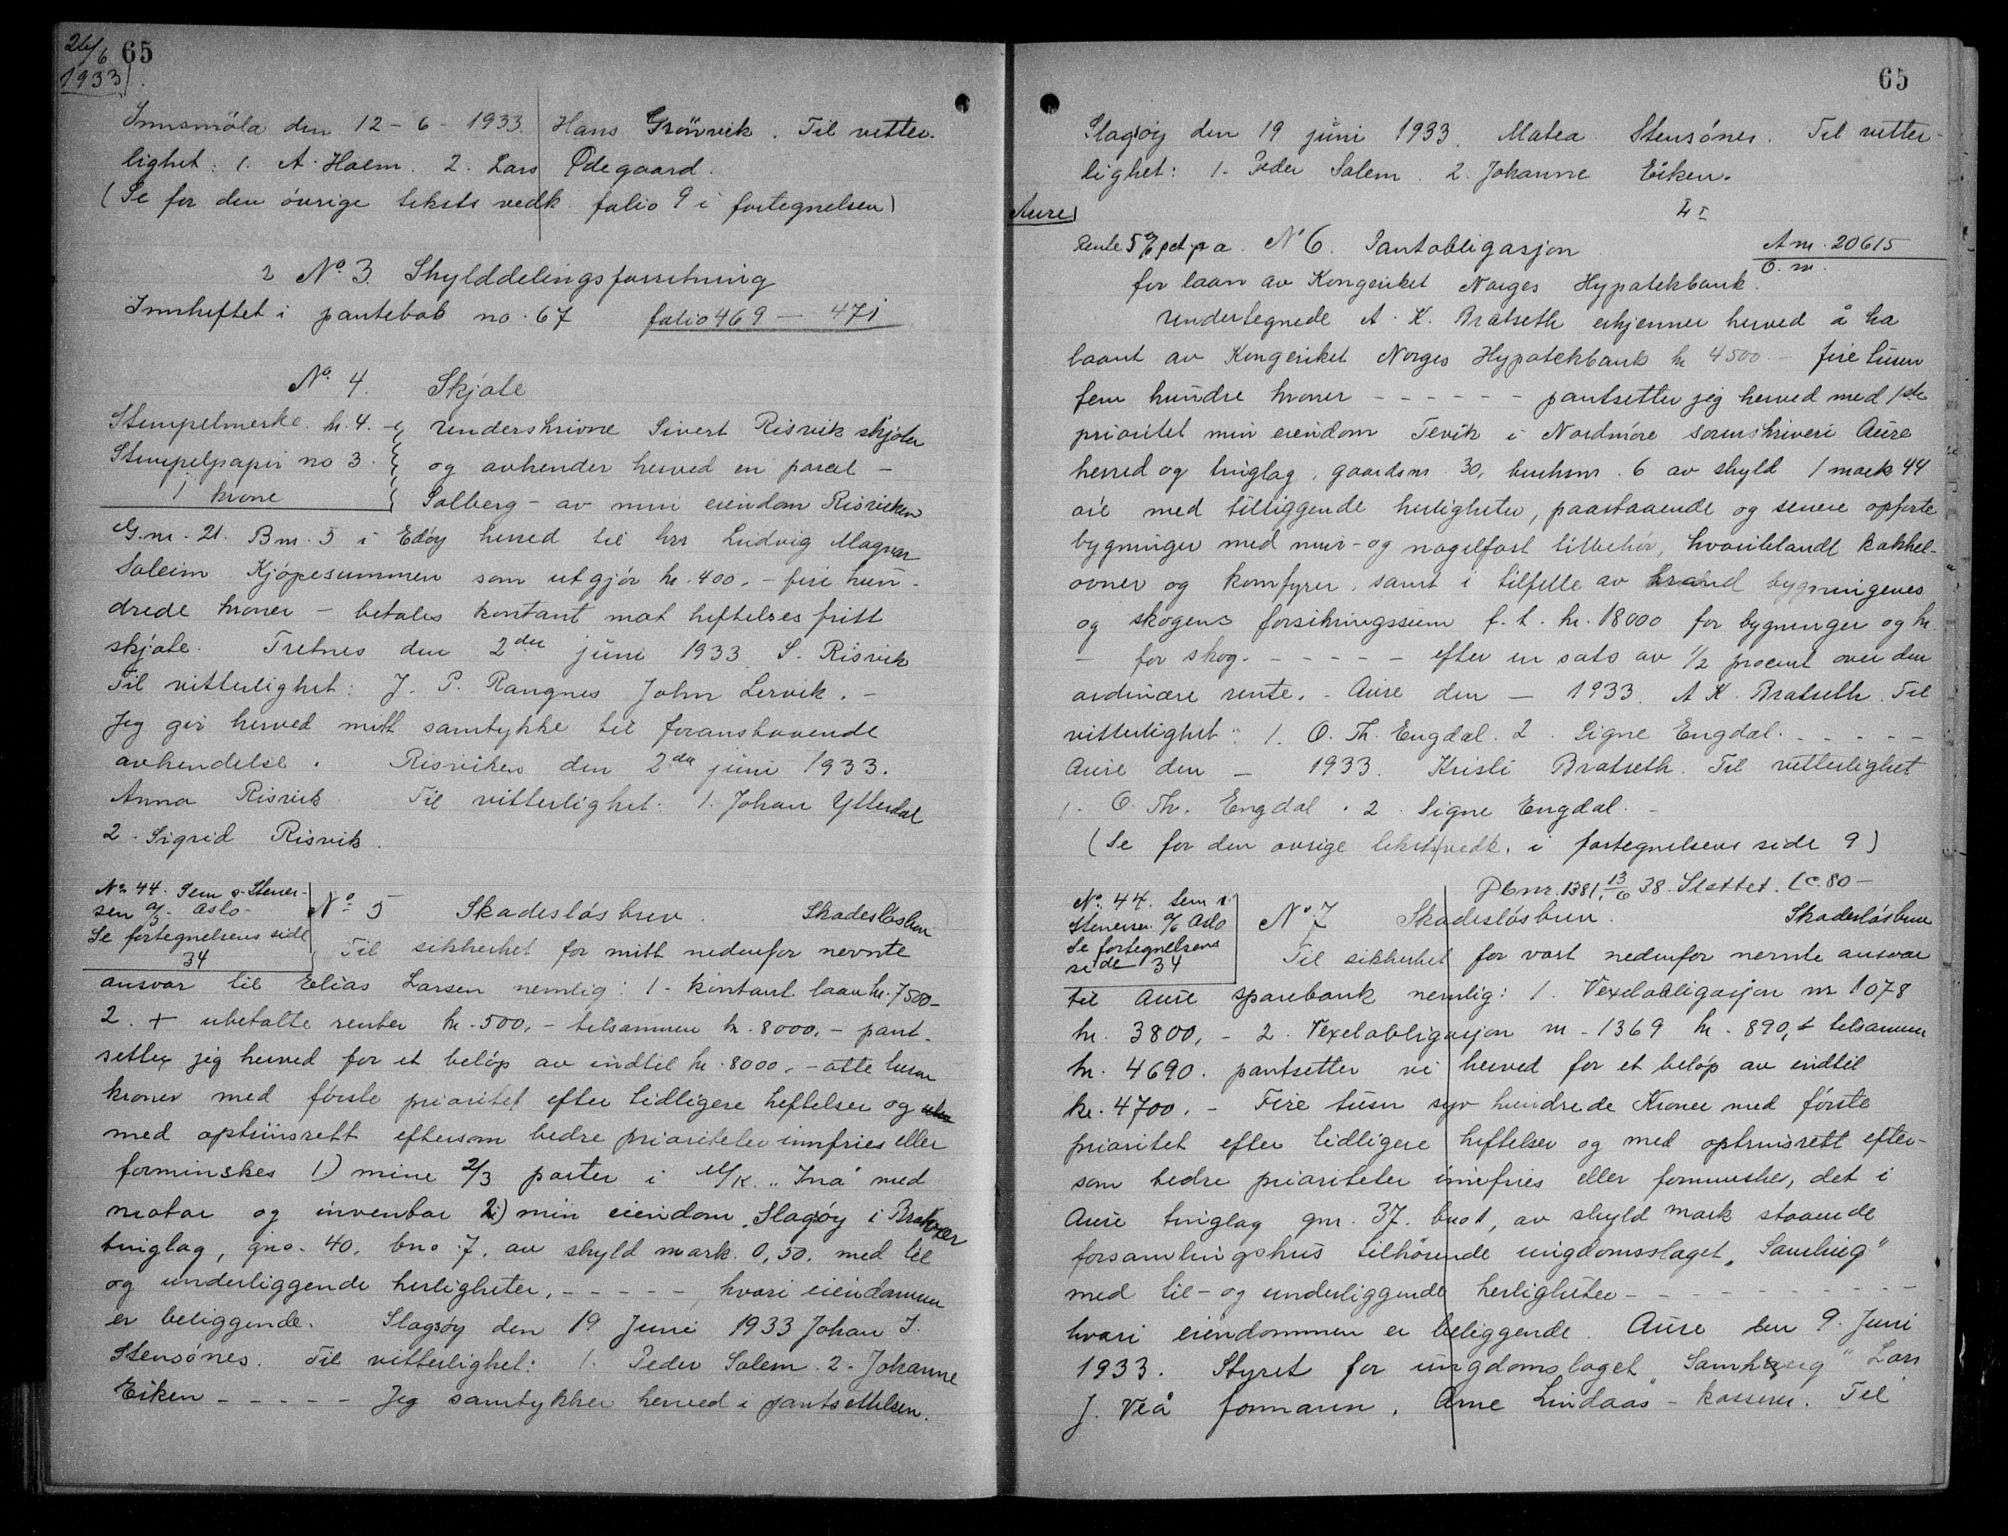 26/6 65
1933
Innsmöla den 12-6-1933. Hans Grönvik. Til vitter-
lighet: 1. A. Holm. 2. Lars Ødegaard.
(Se for den övrige teksts vedk. folio 9 i fortegnelsen)
2 No. 3. Skylddelingsforretning
Innheftet i pantebok no. 67 folio 469 – 471
No. 4. Skjöte
Stempelmerke kr. 4.-
Stempelpapir no 3.
1 krone
Underskrivne Sivert Risvik skjöter
og avhender herved en parcel –
Solberg – av min eiendom Risviken
G.nr. 21. Bnr. 5 i Edöy herred til hrr Ludvig Magnar
Soleim Kjöpesummen som utgjör kr. 400.- fire hun-
drede kroner – betales kontant mot heftelses fritt
skjöte. Tretnes den 2den juni 1933. S. Risvik
Til vitterlighet: J. P. Rangnes John Lervik. –
Jeg gir herved mitt samtykke til foranstaaende
avhendelse. Risviken den 2de juni 1933.
Anna Risvik. Til vitterlighet: 1. Johan Ytterdal
2. Sigrid Risvik.
No 44. Sem & Stener-
sen A/S. Oslo
Se fortegnelsens side
34
No. 5 Skadeslösbrev. Skadeslösbrev
Til sikkerhet for mitt nedenfor nevnte
ansvar til Elias Larsen nemlig: 1. kontant laan kr. 7500-
2. + ubetalte renter kr. 500,- tilsammen kr. 8000,- pant-
setter jeg herved for et belöp av indtil kr. 8000,- otte tusen
kroner med förste prioritet efter tidligere heftelser og
med optrinsrett eftersom bedre prioriteter innfries eller
forminskes 1) mine 2/3 parter i M/K. "Ina" med
motor og inventar 2) min eiendom, Slagsöy i Brattvær
tinglag, gno. 40, bno. 7, av skyld mark. 0,50. med til
og underliggende herligheter, - - - - -, hvori eiendommen
er beliggende. Slagsöy den 19 Juni 1933 Johan J.
Stensönes. Til vitterlighet: 1. Peder Solem. 2. Johanne
Eiken - - - - - Jeg samtykker herved i pantsettelsen.
65
Slagsöy den 19 juni 1933. Matea Stensönes. Til vitter-
lighet: 1. Peder Solem. 2. Johanne Eiken.
Aure
Rente 5% pct. p a. No 6. Pantobligasjon
A nr. 20615
O. nr.
for laan av Kongeriket Norges Hypotekbank.
Undertegnede A. K. Bratseth erkjenner herved å ha
laant av Kongeriket Norges Hypotekbank kr 4500 – fire tusen
fem hundre kroner - - - - - - pantsetter jeg herved med 1ste
prioritet min eiendom Tevik i Nordmöre sorenskriveri Aure
herred og tinglag, gaardsnr. 30, bruksnr. 6 av skyld 1 mark 44
öre med tilliggende herligheter, paastaaende og senere opförte
bygninger med mur- og nagelfast tilbehör, hvoriblandt kakkel-
ovner og komfyrer, samt i tilfelle av brand bygningenes
og skogens forsikringssum f. t. kr. 18000 for bygninger og kr.
– for skog. - - - - - efter en sats av 1/2 procent over den
ordinære rente. - Aure den – 1933. A K. Bratseth. Til
vitterlighet: 1. O. Th. Engdal. 2. Signe Engdal. - - - - -
Aure den – 1933. Kristi Bratseth. Til vitterlighet
1. O. Th. Engdal. 2. Signe Engdal. –
(Se for den övrige tekst vedk. i fortegnelsens side 9)
Pbnr. 1381, 13/6 38. Slettet.
No. 44. Sem &
Stenersen A/S Oslo
Se fortegnelsens
side 34
No. 7 Skadeslösbrev. Skadeslösbrev
Til sikkerhet for vort nedenfor nevnte ansvar
til Aure sparebank nemlig: 1. Vexelobligasjon nr 1078
kr. 3800,- 2. Vexelobligasjon nr. 1369 kr. 890,- tilsammen
kr. 4690. pantsetter vi herved for et belöp av indtil
kr. 4700. - Fire tusen syv hundrede Kroner med förste
prioritet efter tidligere heftelser og med optrinsrett efter-
som bedre prioriteter innfries eller forminskes, det i
Aure tinglag gnr. 37. bno 1, av skyld mark staaende
forsamlingshus tilhörende ungdomsslaget "Samhug"
med til- og underliggende herligheter - - - - - - - - -
hvori eiendommen er beliggende. Aure den 9. Juni
1933. Styret for ungdomslaget "Samhug" Lars
J. Veå formann. Arne Lindaas – kasserer. Til